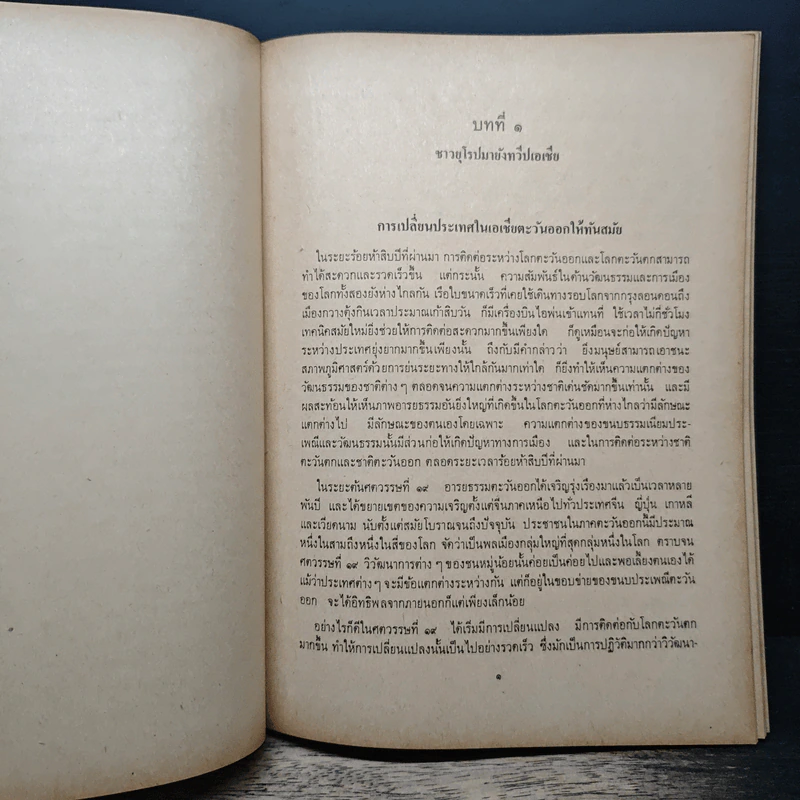 บทที่ ๑
ชาวยุโรปมายังทวีปเอเชีย
การเปลี่ยนประเทศในเอเชียตะวันออกให้ทันสมัย
ในระยะร้อยห้าสิบปีที่ผ่านมา การติดต่อระหว่างโลกตะวันออกและโลกตะวันตกสามารถ
ทำได้สะดวกและรวดเร็วขึ้น แต่กระนั้น ความสัมพันธ์ในด้านวัฒนธรรมและการเมือง
ของโลกทั้งสองยังห่างไกลกัน เรือใบขนาดเร็วที่เคยใช้เดินทางรอบโลกจากกรุงลอนดอนถึง
เมืองกวางตุ้งกินเวลาประมาณเก้าสิบวัน ก็มีเครื่องบินไอพ่นเข้าแทนที่ ใช้เวลาไม่กี่ชั่วโมง
เทคนิคสมัยใหม่ยิ่งช่วยให้การติดต่อสะดวกมากขึ้นเพียงใด ก็ดูเหมือนจะก่อให้เกิดปัญหา
ระหว่างประเทศยุ่งยากมากขึ้นเพียงนั้น ถึงกับมีคำกล่าวว่า ยิ่งมนุษย์สามารถเอาชนะ
สภาพภูมิศาสตร์ด้วยการย่นระยะทางให้ใกล้กันมากเท่าใด ก็ยิ่งทำให้เห็นความแตกต่างของ
วัฒนธรรมของชาติต่าง ๆ ตลอดจนความแตกต่างระหว่างชาติเด่นชัดมากขึ้นเท่านั้น และมี
ผลสะท้อนให้เห็นภาพอารยธรรมอันยิ่งใหญ่ที่เกิดขึ้นในโลกตะวันออกที่ห่างไกลว่ามีลักษณะ
แตกต่างไป มีลักษณะของตนเองโดยเฉพาะ ความแตกต่างของขนบธรรมเนียมประ-
เพณีและวัฒนธรรมนั้นมีส่วนก่อให้เกิดปัญหาทางการเมือง และในการติดต่อระหว่างชาติ
ตะวันตกและชาติตะวันออก ตลอดระยะเวลาร้อยห้าสิบปีที่ผ่านมา
ในระยะต้นศตวรรษที่ ๑๙ อารยธรรมตะวันออกได้เจริญรุ่งเรืองมาแล้วเป็นเวลาหลาย
พันปี และได้ขยายเขตของความเจริญตั้งแต่จีนภาคเหนือไปทั่วประเทศจีน ญี่ปุ่น เกาหลี
และเวียดนาม นับตั้งแต่สมัยโบราณจนถึงปัจจุบัน ประชาชนในภาคตะวันออกนี้มีประมาณ
หนึ่งในสามถึงหนึ่งในสี่ของโลก จัดว่าเป็นพลเมืองกลุ่มใหญ่ที่สุดกลุ่มหนึ่งในโลก ตราบจน
ศตวรรษที่ ๑๙ วิวัฒนาการต่าง ๆ ของชนหมู่น้อยนั้นค่อยเป็นค่อยไปและพอเลี้ยงตนเองได้
แม้ว่าประเทศต่างๆ จะมีข้อแตกต่างระหว่างกัน แต่ก็อยู่ในขอบข่ายของขนบประเพณีตะวัน
ออก จะได้อิทธิพลจากภายนอกก็แต่เพียงเล็กน้อย
อย่างไรก็ดีในศตวรรษที่ ๑๙ ได้เริ่มมีการเปลี่ยนแปลง มีการติดต่อกับโลกตะวันตก
มากขึ้น ทำให้การเปลี่ยนแปลงนั้นเป็นไปอย่างรวดเร็ว ซึ่งมักเป็นการปฏิวัติมากกว่าวิวัฒนา-
๑